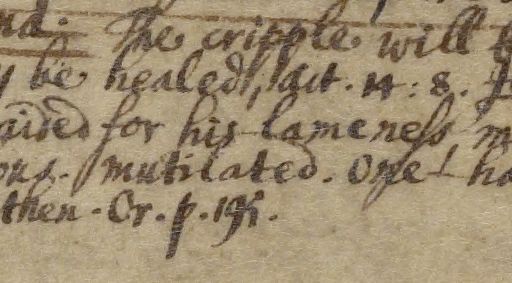 nd. The cripple will
be healed, Act. 14: 8.
aired for his lameness,
ous. mutilated. One
then. Or. p. 195.